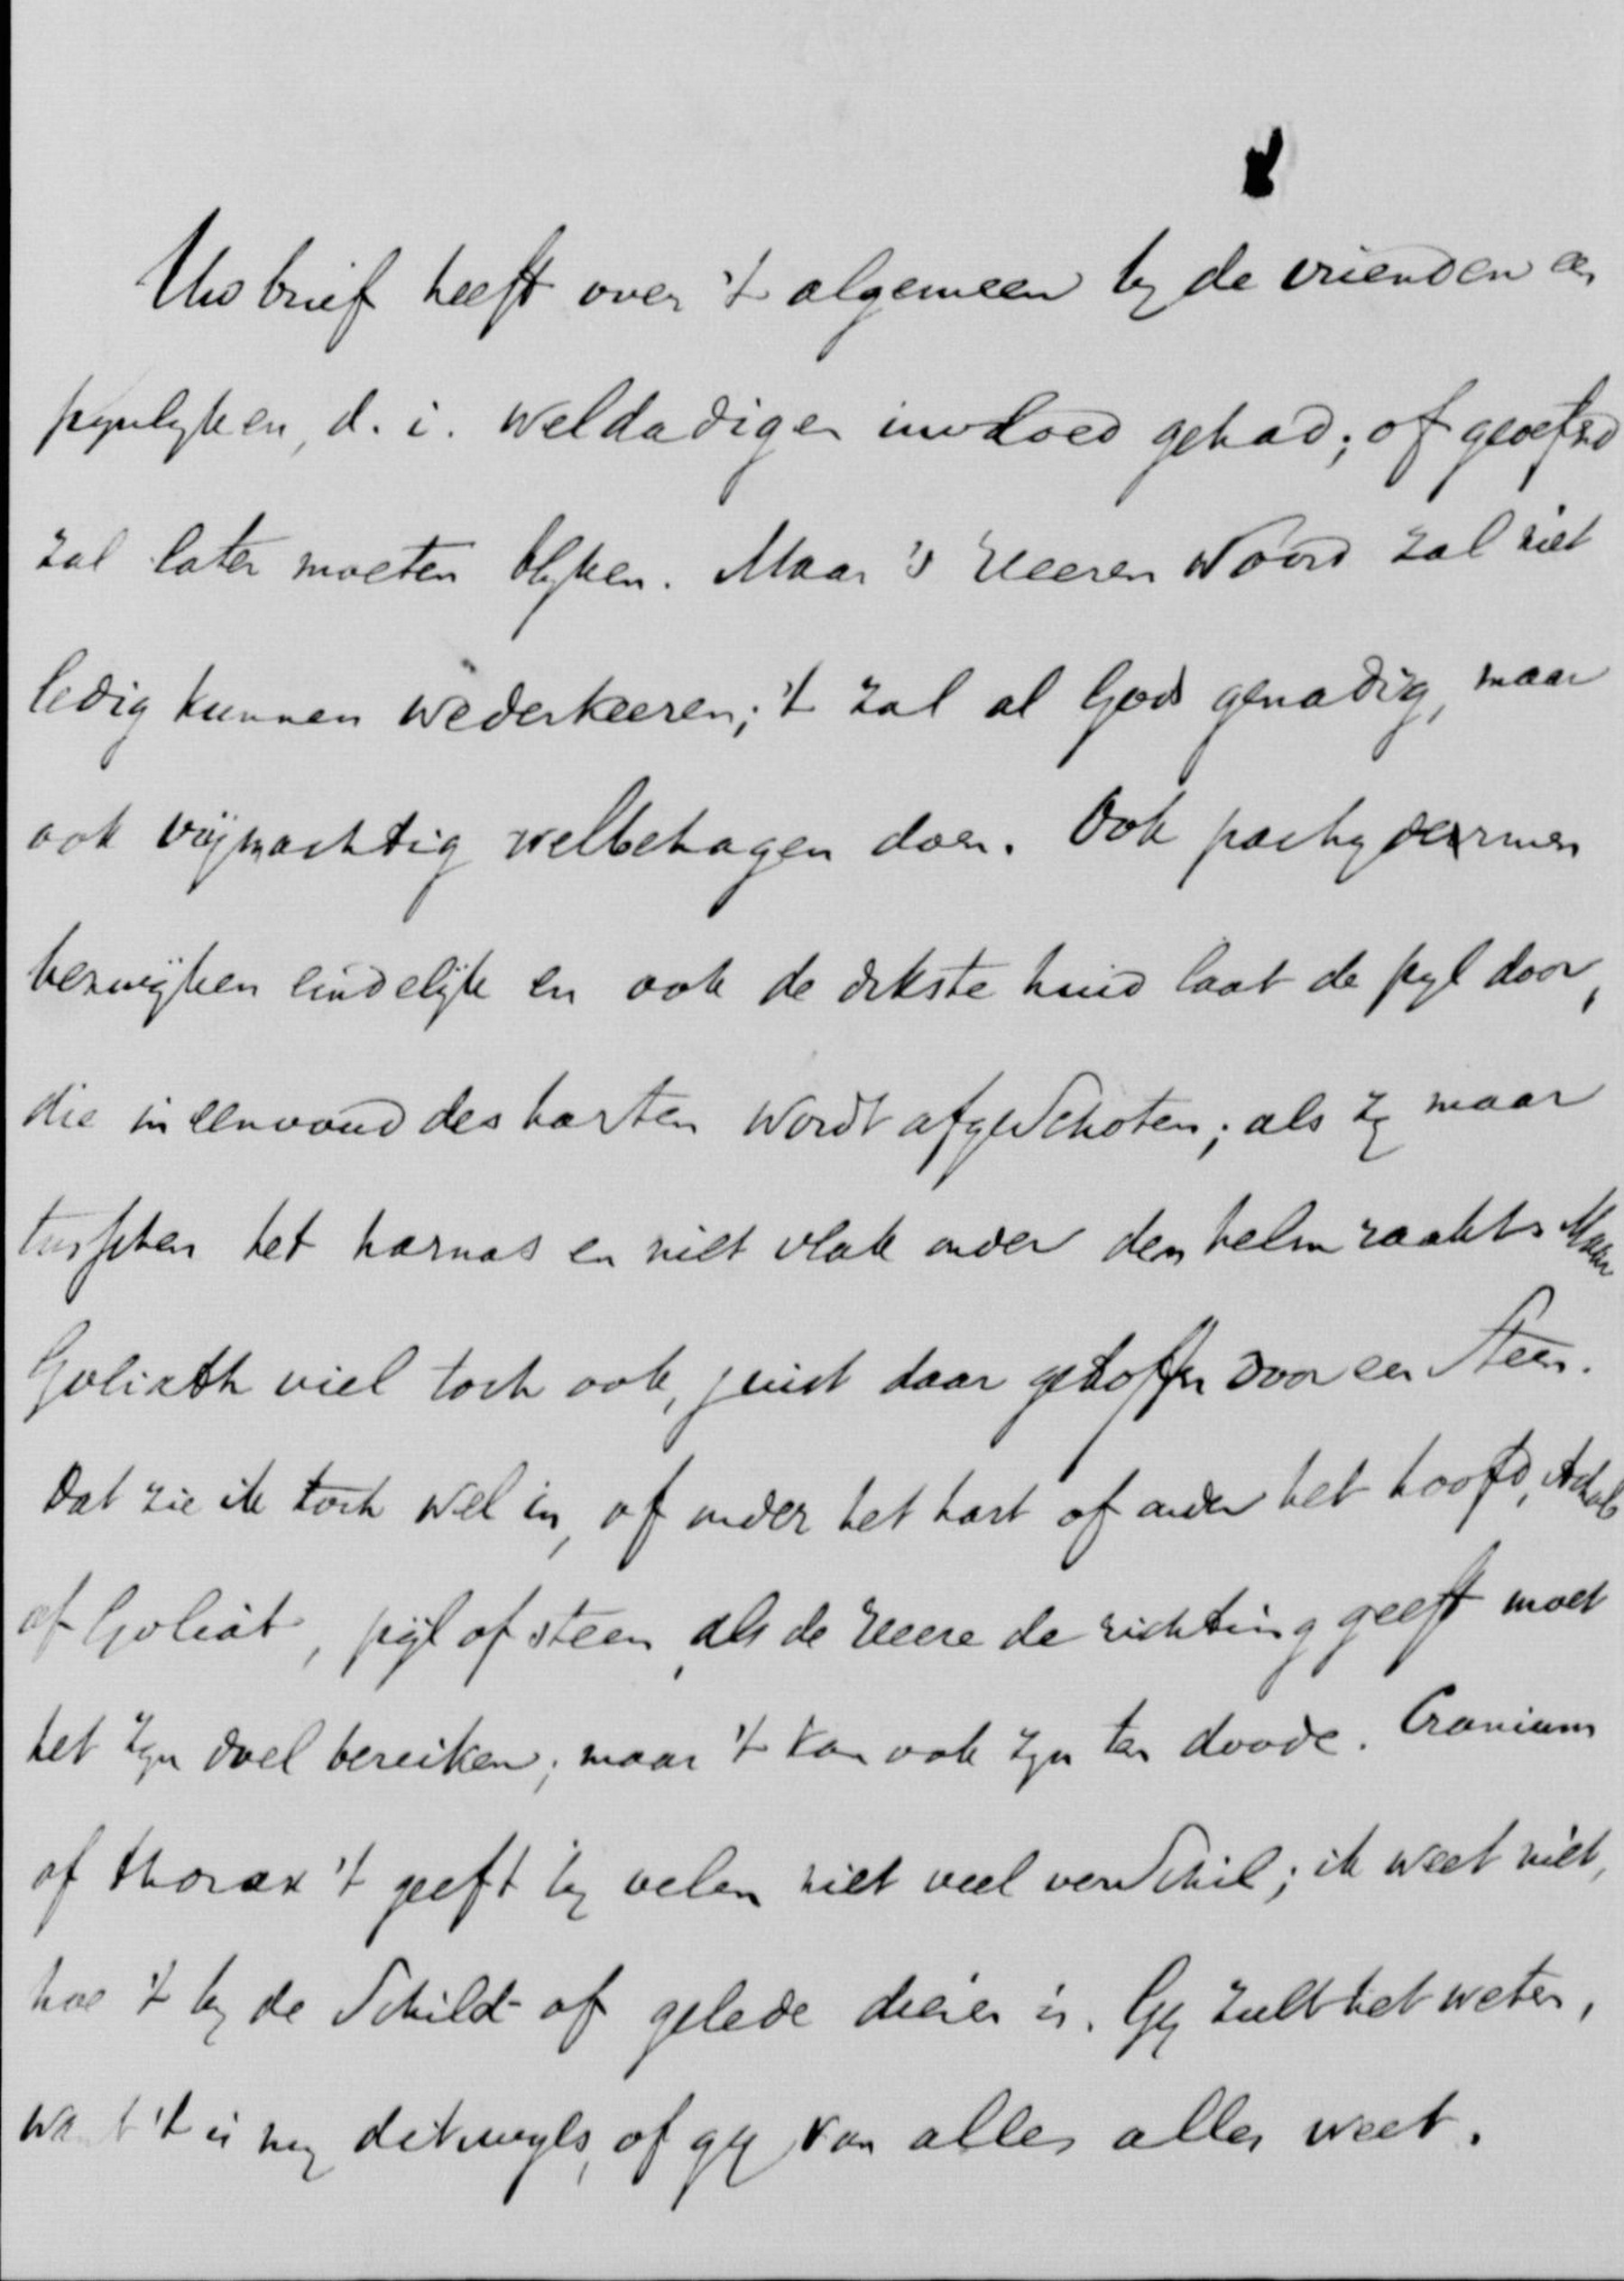 Uw brief heeft over 't algemeen by de vrienden een
pynlyken, d. i. weldadigen invloed gehad; of geoefend
zal later moeten blyken. Maar 's Heeren Woord zal niet
ledig kunnen wederkeeren; 't zal al Gods genadig, maar
ook vrijmachtig welbehagen doen. Ook pachydermen
bezwyken eindelyk en ook de dikste huid laat de pyl door,
die in eenvoud des harten wordt afgeschoten; als zy maar
tusschen het harnas en niet vlak onder den helm raakt. Maar
Goliath viel toch ook, juist daar getroffen door een steen.
Dat zie ik toch wel in, of onder het hart of onder het hoofd, Achab
of Goliat, pijl of steen, als de Heere de richting geeft moet
het zyn doel bereiken; maar 't kan ook zyn ten doode. Cranium
of thorax 't geeft by velen niet veel verschil; ik weet niet,
hoe 't by de schild- of gelede dieren is. Gy zult het weten,
want 't is my dikwyls, of gy van alles alles weet.